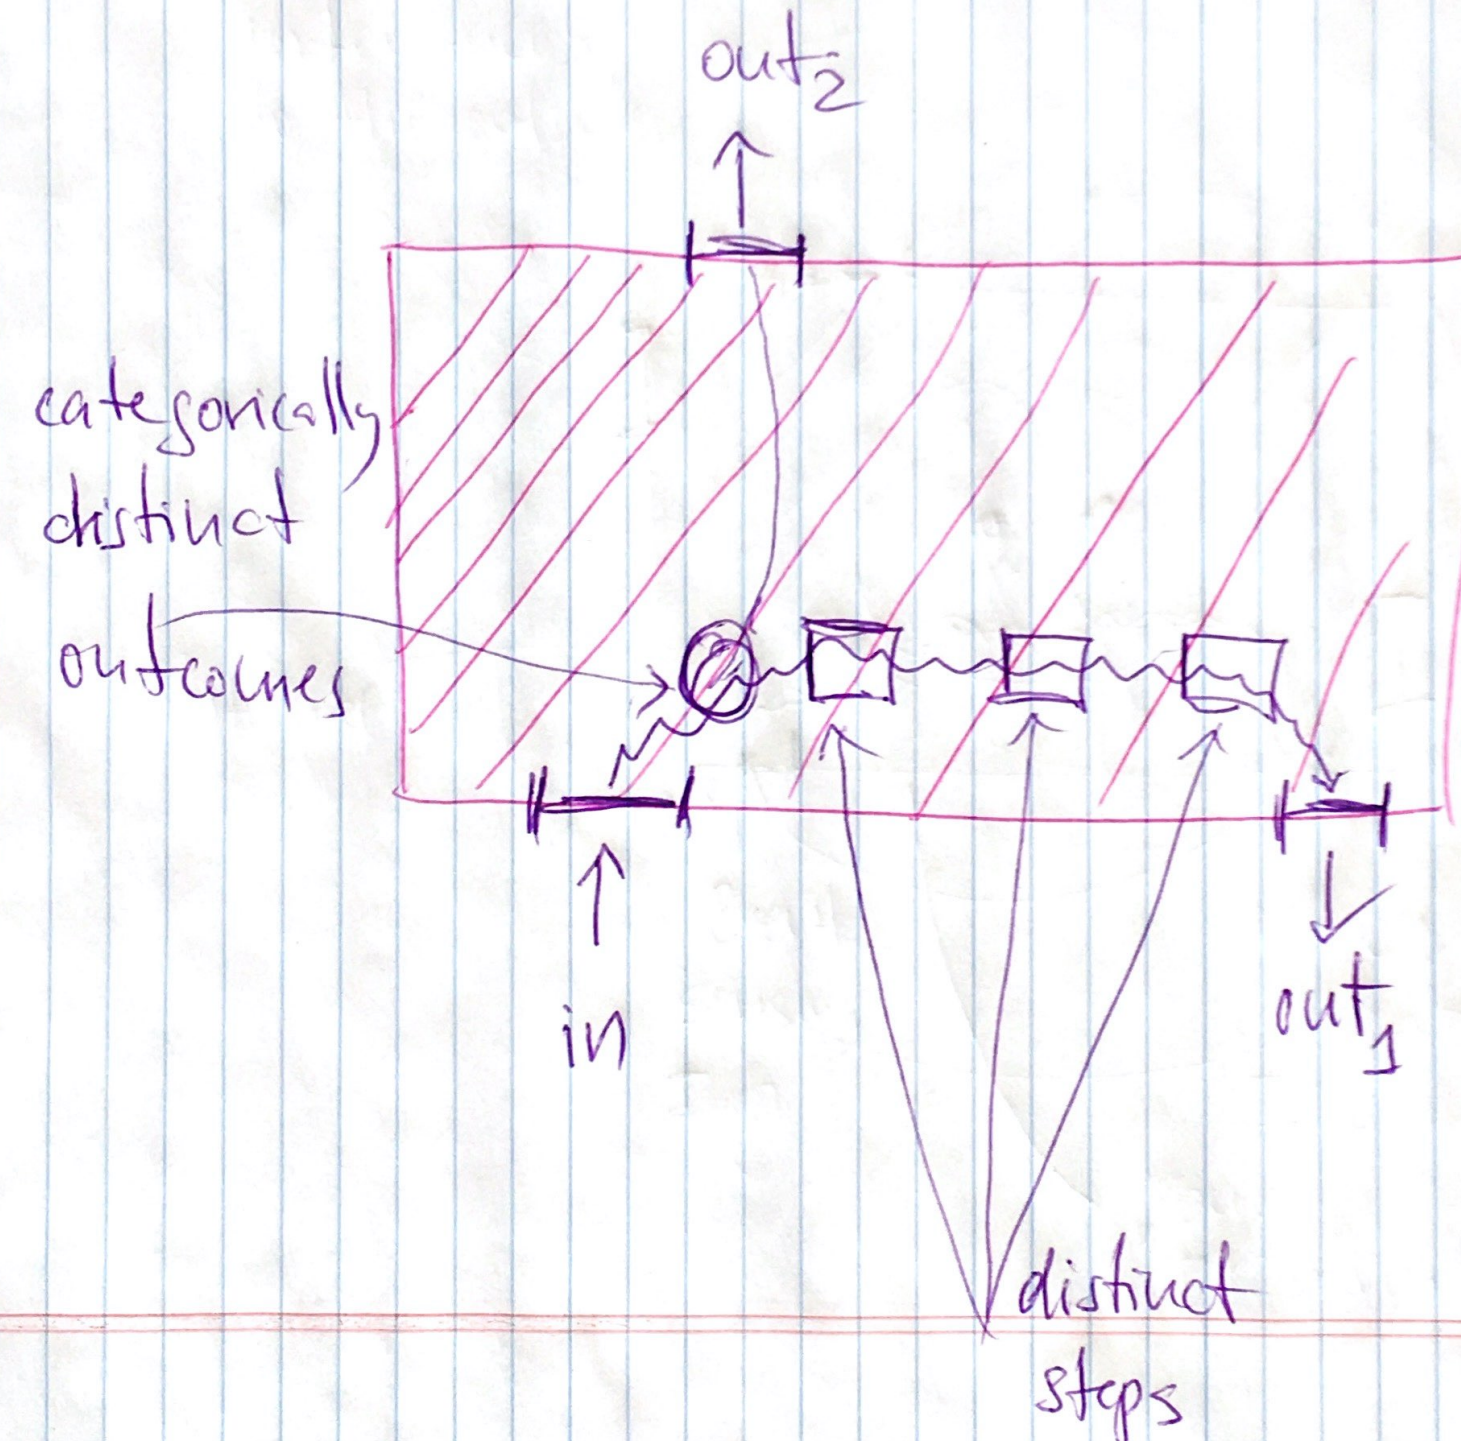 out₂
categorically
distinct
outcomes
in
out₁
distinct
steps